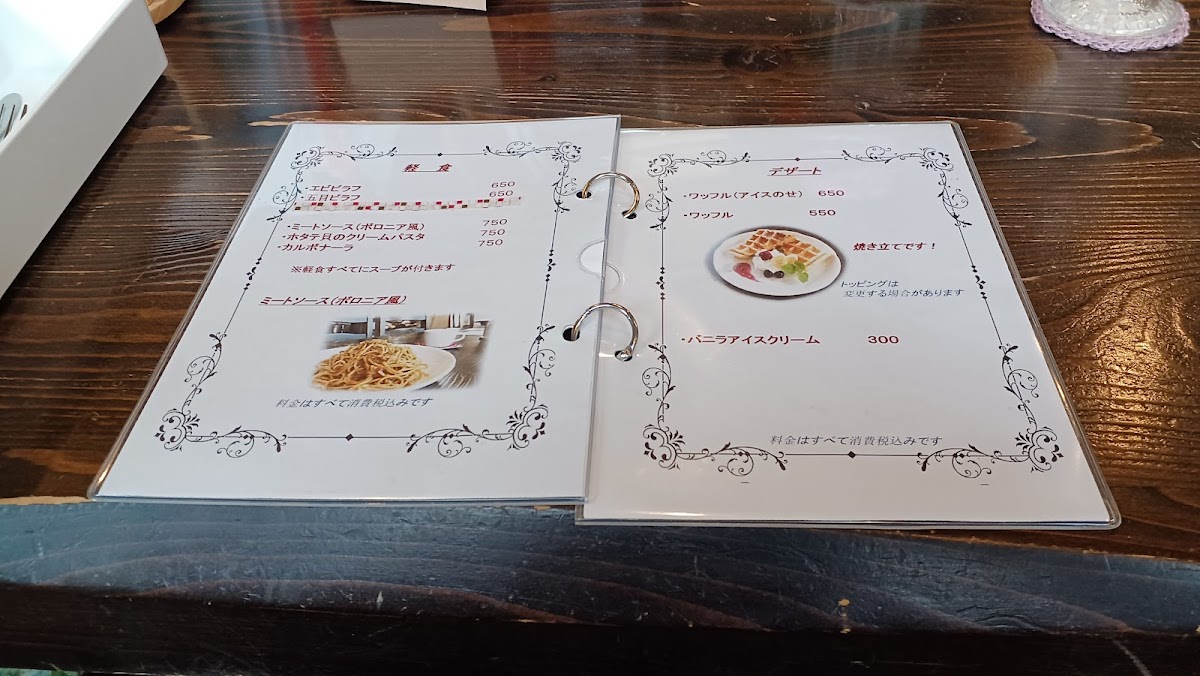 軽 食
・エビピラフ 650
・五目ピラフ 650
・ミートソース(ボロニア風) 750
・ホタテ貝のクリームパスタ 750
・カルボナーラ 750
※軽食すべてにスープが付きます
ミートソース(ボロニア風)
料金はすべて消費税込みです
デザート
・ワッフル(アイスのせ) 650
・ワッフル 550
焼き立てです！
トッピングは
変更する場合があります
・バニラアイスクリーム 300
料金はすべて消費税込みです